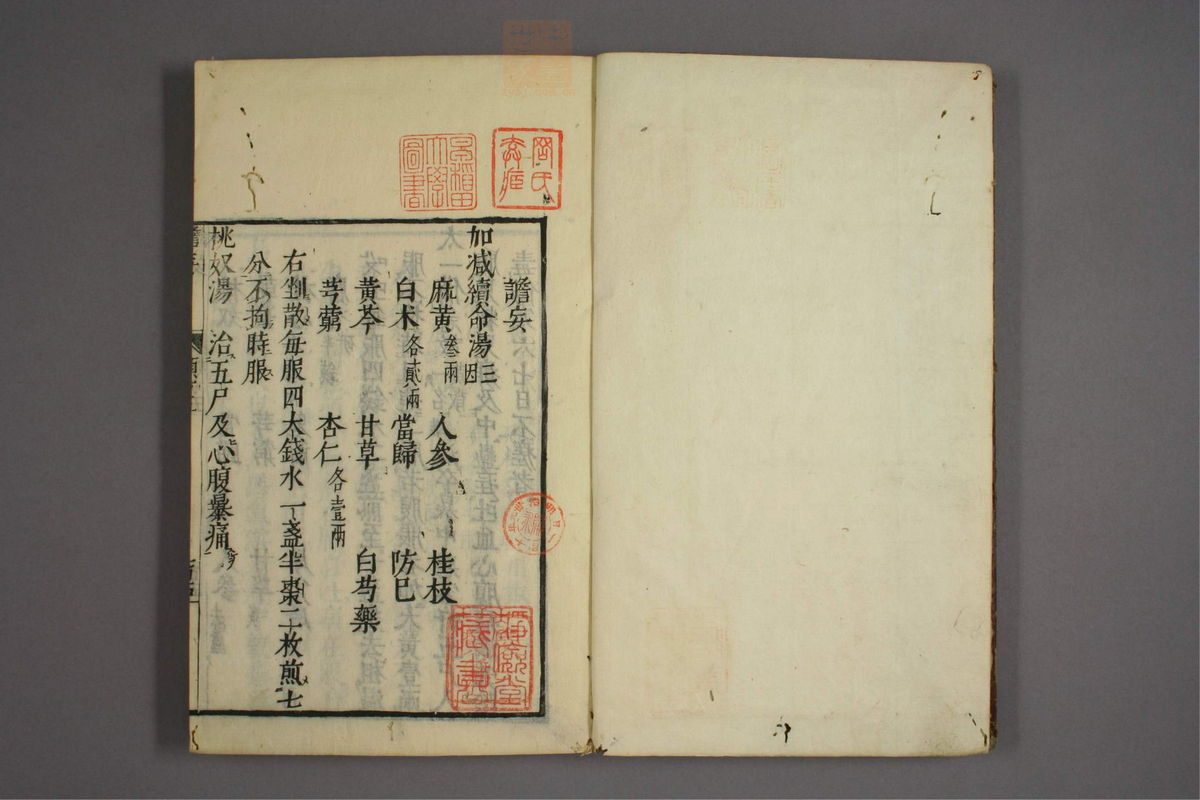 譫妄
加減續命湯 三因
麻黃叄兩 人參 桂枝
白术各貳兩 當歸 防巳
黃芩 甘草 白芍藥
芎藭 杏仁各壹兩
右剉散每服四大錢水一盞半棗二十枚煎七
分不拘時服
桃奴湯 治五尸及心腹暴痛
圖書
靜嘉堂
藏書